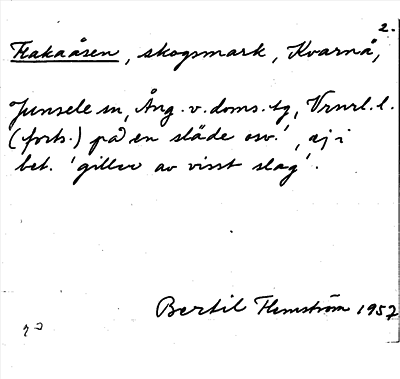 2.
Flakaåsen, skogsmark, Kvarnå,
Junsele sn, Ång. v. doms. tg, Vrnrl. l.
(forts.) på en släde osv.', ej i
bet. 'giller av visst slag'.
Bertil Flemström 1957